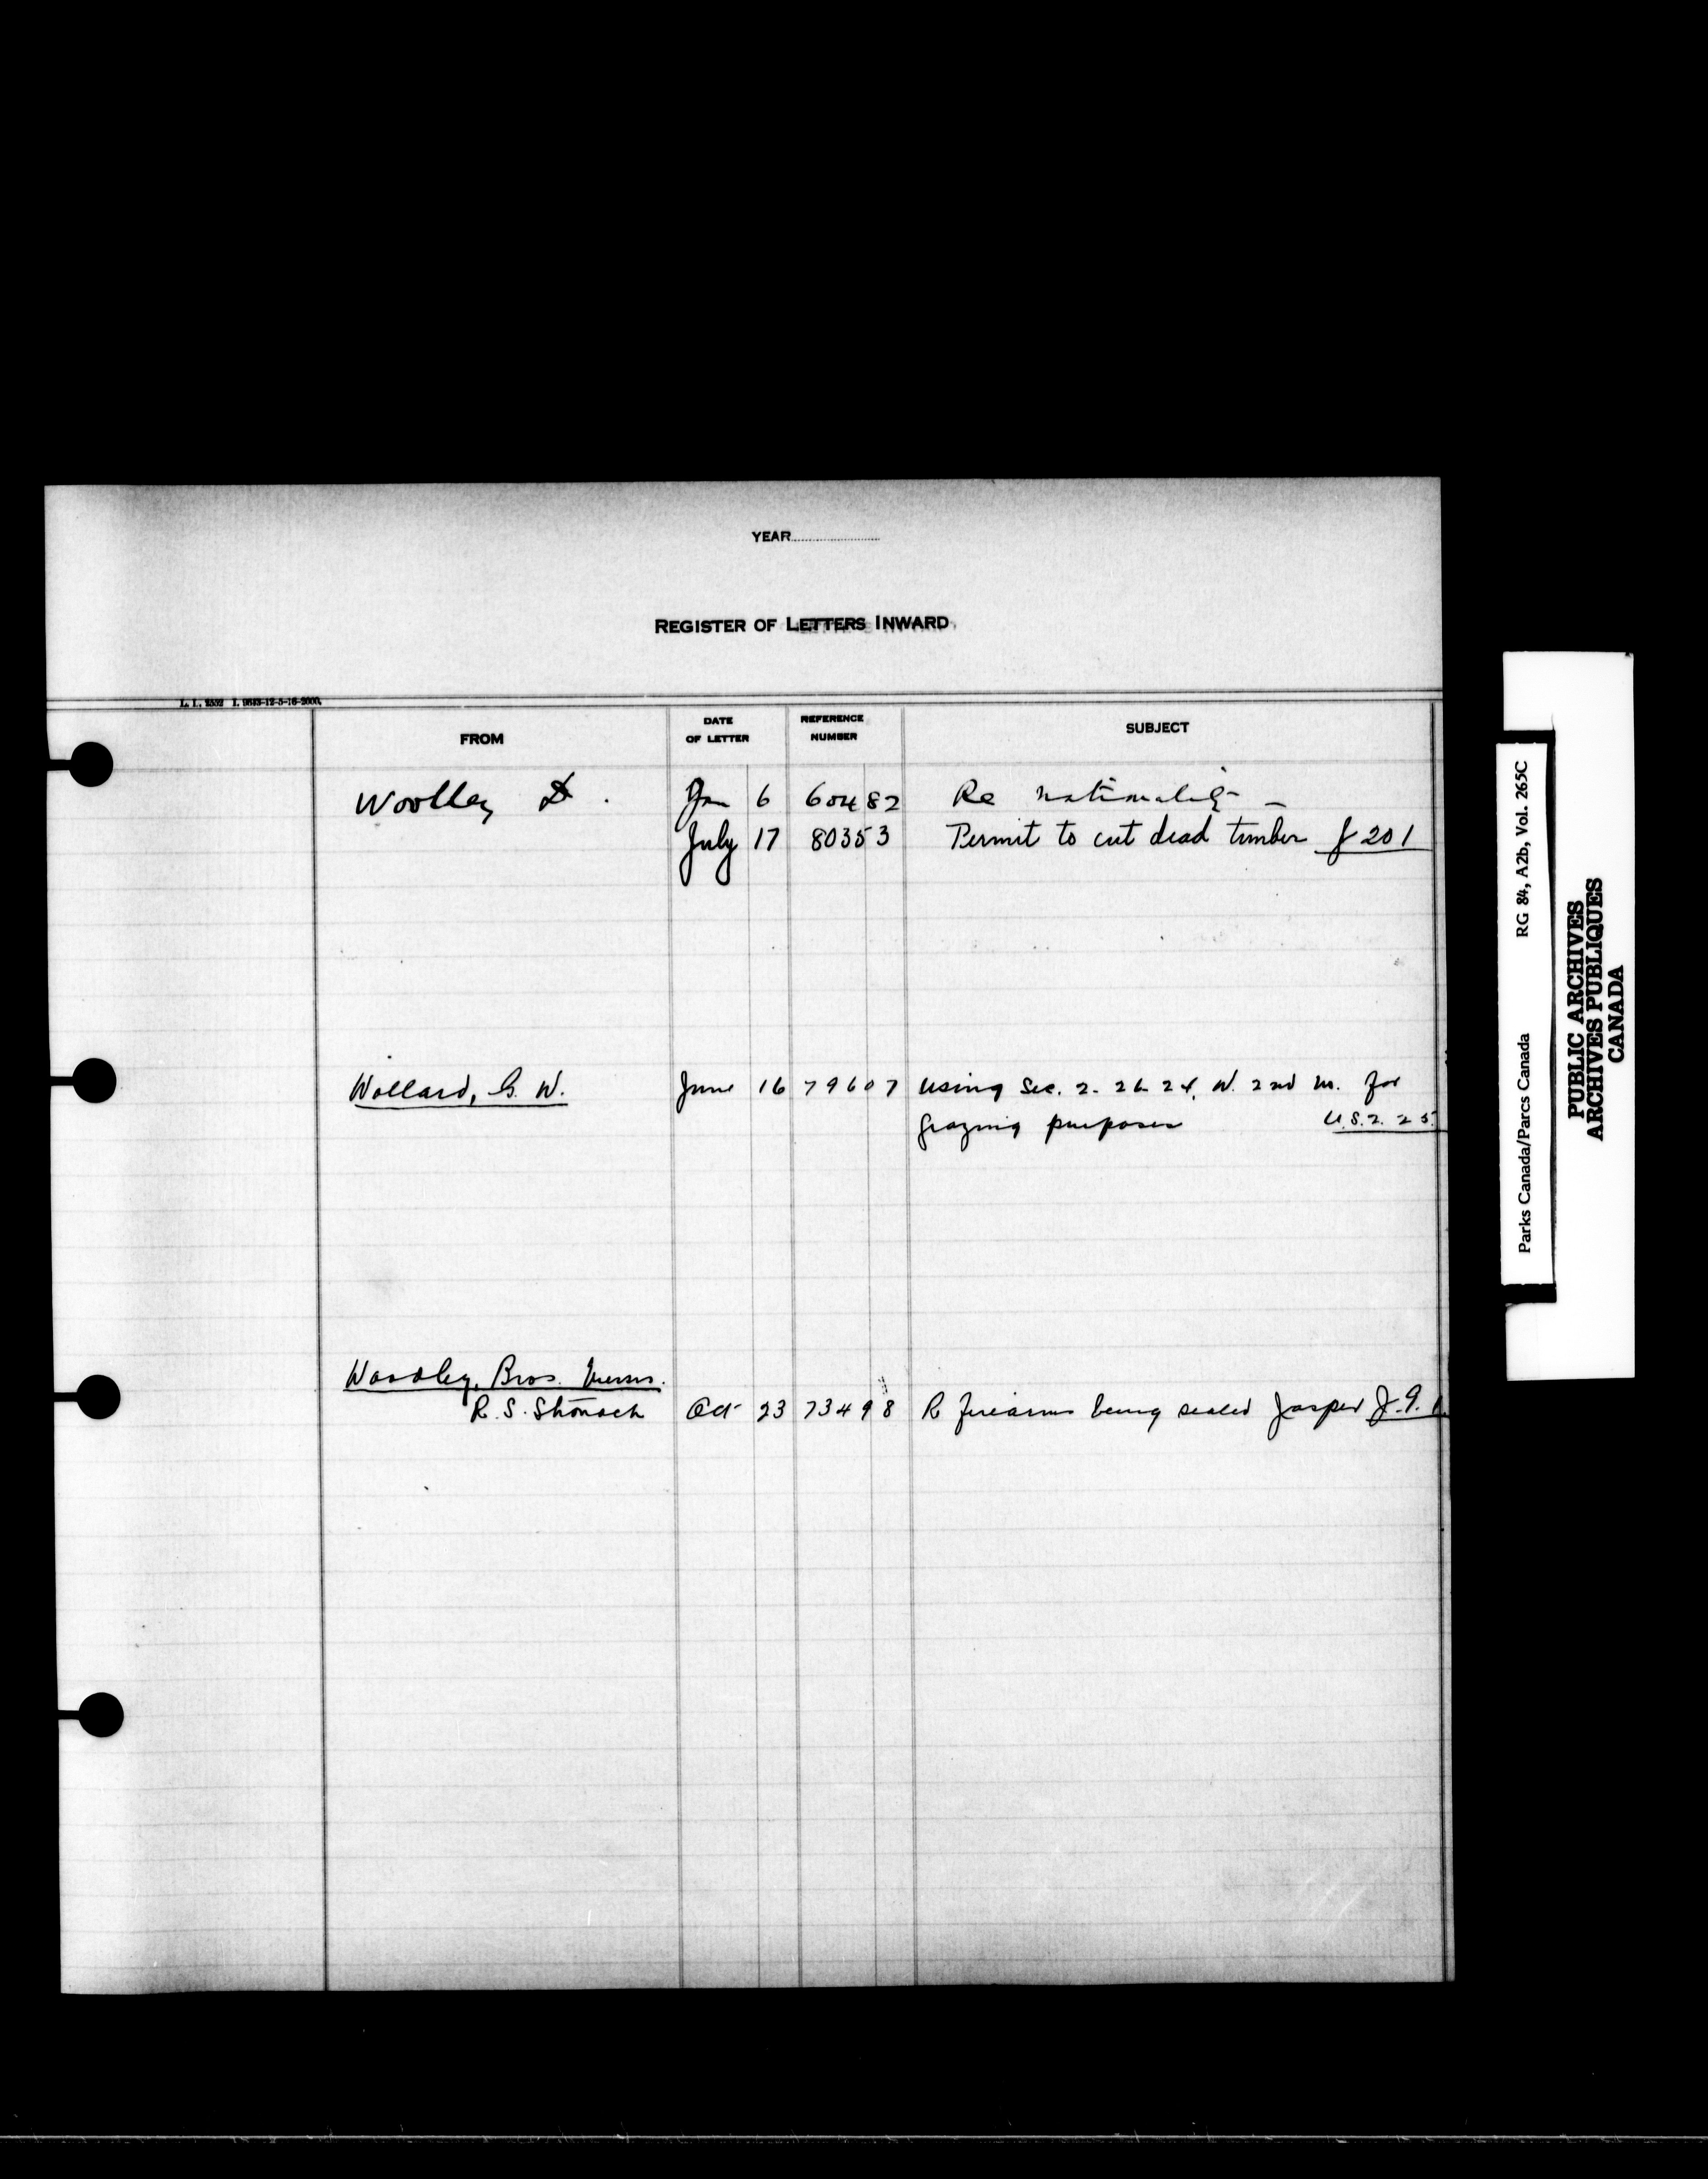 YEAR
REGISTER OF LETTERS INWARD.
L. I. 2552 I. 9633-12-5-16-2000.
FROM DATE OF LETTER REFERENCE NUMBER SUBJECT
Woolley D. Jan 6 60482 Re nationality -
July 17 80353 Permit to cut dead timber J 201
Wollard, G. W. June 16 79607 using Sec. 2. 26 24, W. 2nd M. for
grazing purposes U.S.2. 25.
Woodley, Bros. Messrs.
R. S. Stronach Oct 23 73498 R firearms being sealed Jasper J.9.1.
Parks Canada/Parcs Canada RG 84, A2b, Vol. 265C
PUBLIC ARCHIVES
ARCHIVES PUBLIQUES
CANADA